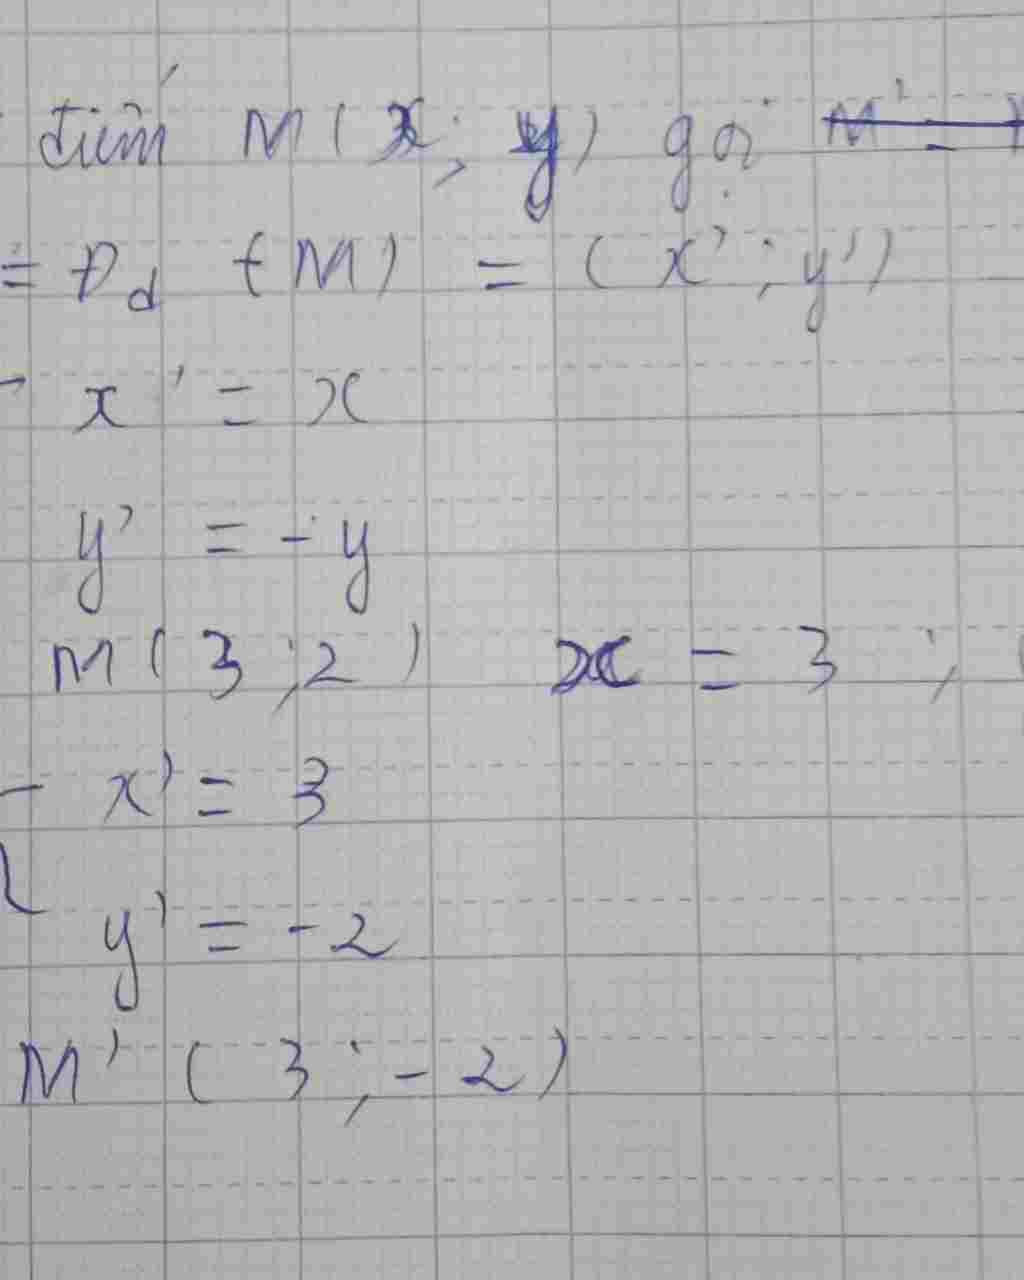 điểm M(x; y) gọi
= Đd (M) = (x'; y')
x' = x
y' = -y
M(3;2) x = 3;
x' = 3
y' = -2
M'(3;-2)